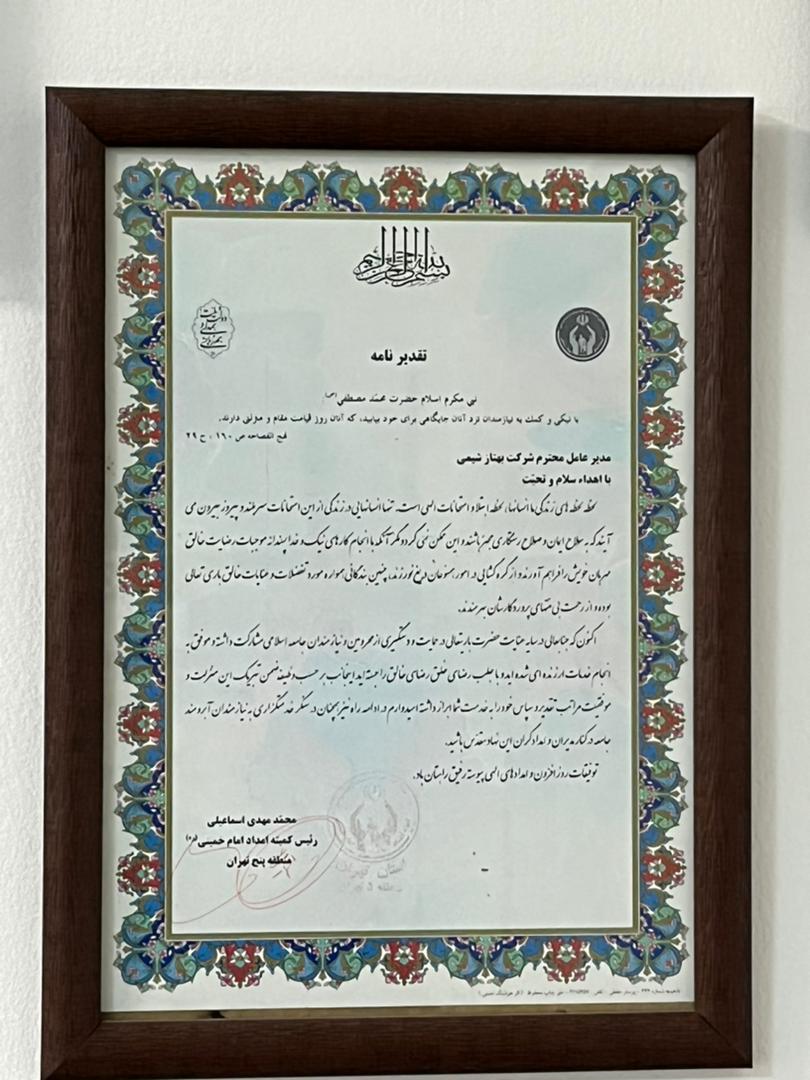 بسم الله الرحمن الرحیم
دولت خدمت
همدلی
همزبانی
تقدیر نامه
نبی مکرم اسلام حضرت محمّد مصطفی(ص)
با نیکی و کمک به نیازمندان نزد آنان جایگاهی برای خود بیابید، که آنان روز قیامت مقام و منزلتی دارند.
نهج الفصاحه ص ۱۶۰ ، ح ۲۹
مدیر عامل محترم شرکت بهتاز شیمی
با اهداء سلام و تحیّت
لحظه لحظه های زندگی ما انسانها، لحظه ابتلا و امتحانات الهی است. تنها انسانهایی در زندگی از این امتحانات سربلند و پیروز بیرون می
آیند که به سلاح ایمان و صلاح رستگاری مجهز باشند و این ممکن نمی گردد مگر آنکه با انجام کارهای نیک و خدا پسندانه موجبات رضایت خالق
مهربان خویش را فراهم آورند و از گره گشایی در امور همنوعان دریغ نورزند، چنین بندگانی همواره مورد تفضلات و عنایات خالق باری تعالی
بوده و از رحمت بی منتهای پروردگارشان بهره مندند.
اکنون که جنابعالی در سایه عنایت حضرت باریتعالی در حمایت و دستگیری از محرومین و نیازمندان جامعه اسلامی مشارکت داشته و موفق به
انجام خدمات ارزنده ای شده اید و با جلب رضای خلق رضای خالق را جسته اید اینجانب بر حسب وظیفه ضمن تبریک این منزلت و
موفقیت مراتب تقدیر و سپاس خود را به خدمت شما ابراز داشته امیدوارم در ادامه راه نیز همچنان در سنگر خدمتگزاری به نیازمندان آبرومند
جامعه در کنار مدیران و امدادگران این نهاد مقدّس باشید.
توفیقات روز افزون و امدادهای الهی پیوسته رفیق راهتان باد.
محمّد مهدی اسماعیلی
رئیس کمیته امداد امام خمینی(ره)
منطقه پنج تهران
استان تهران
منطقه ۵ تهران